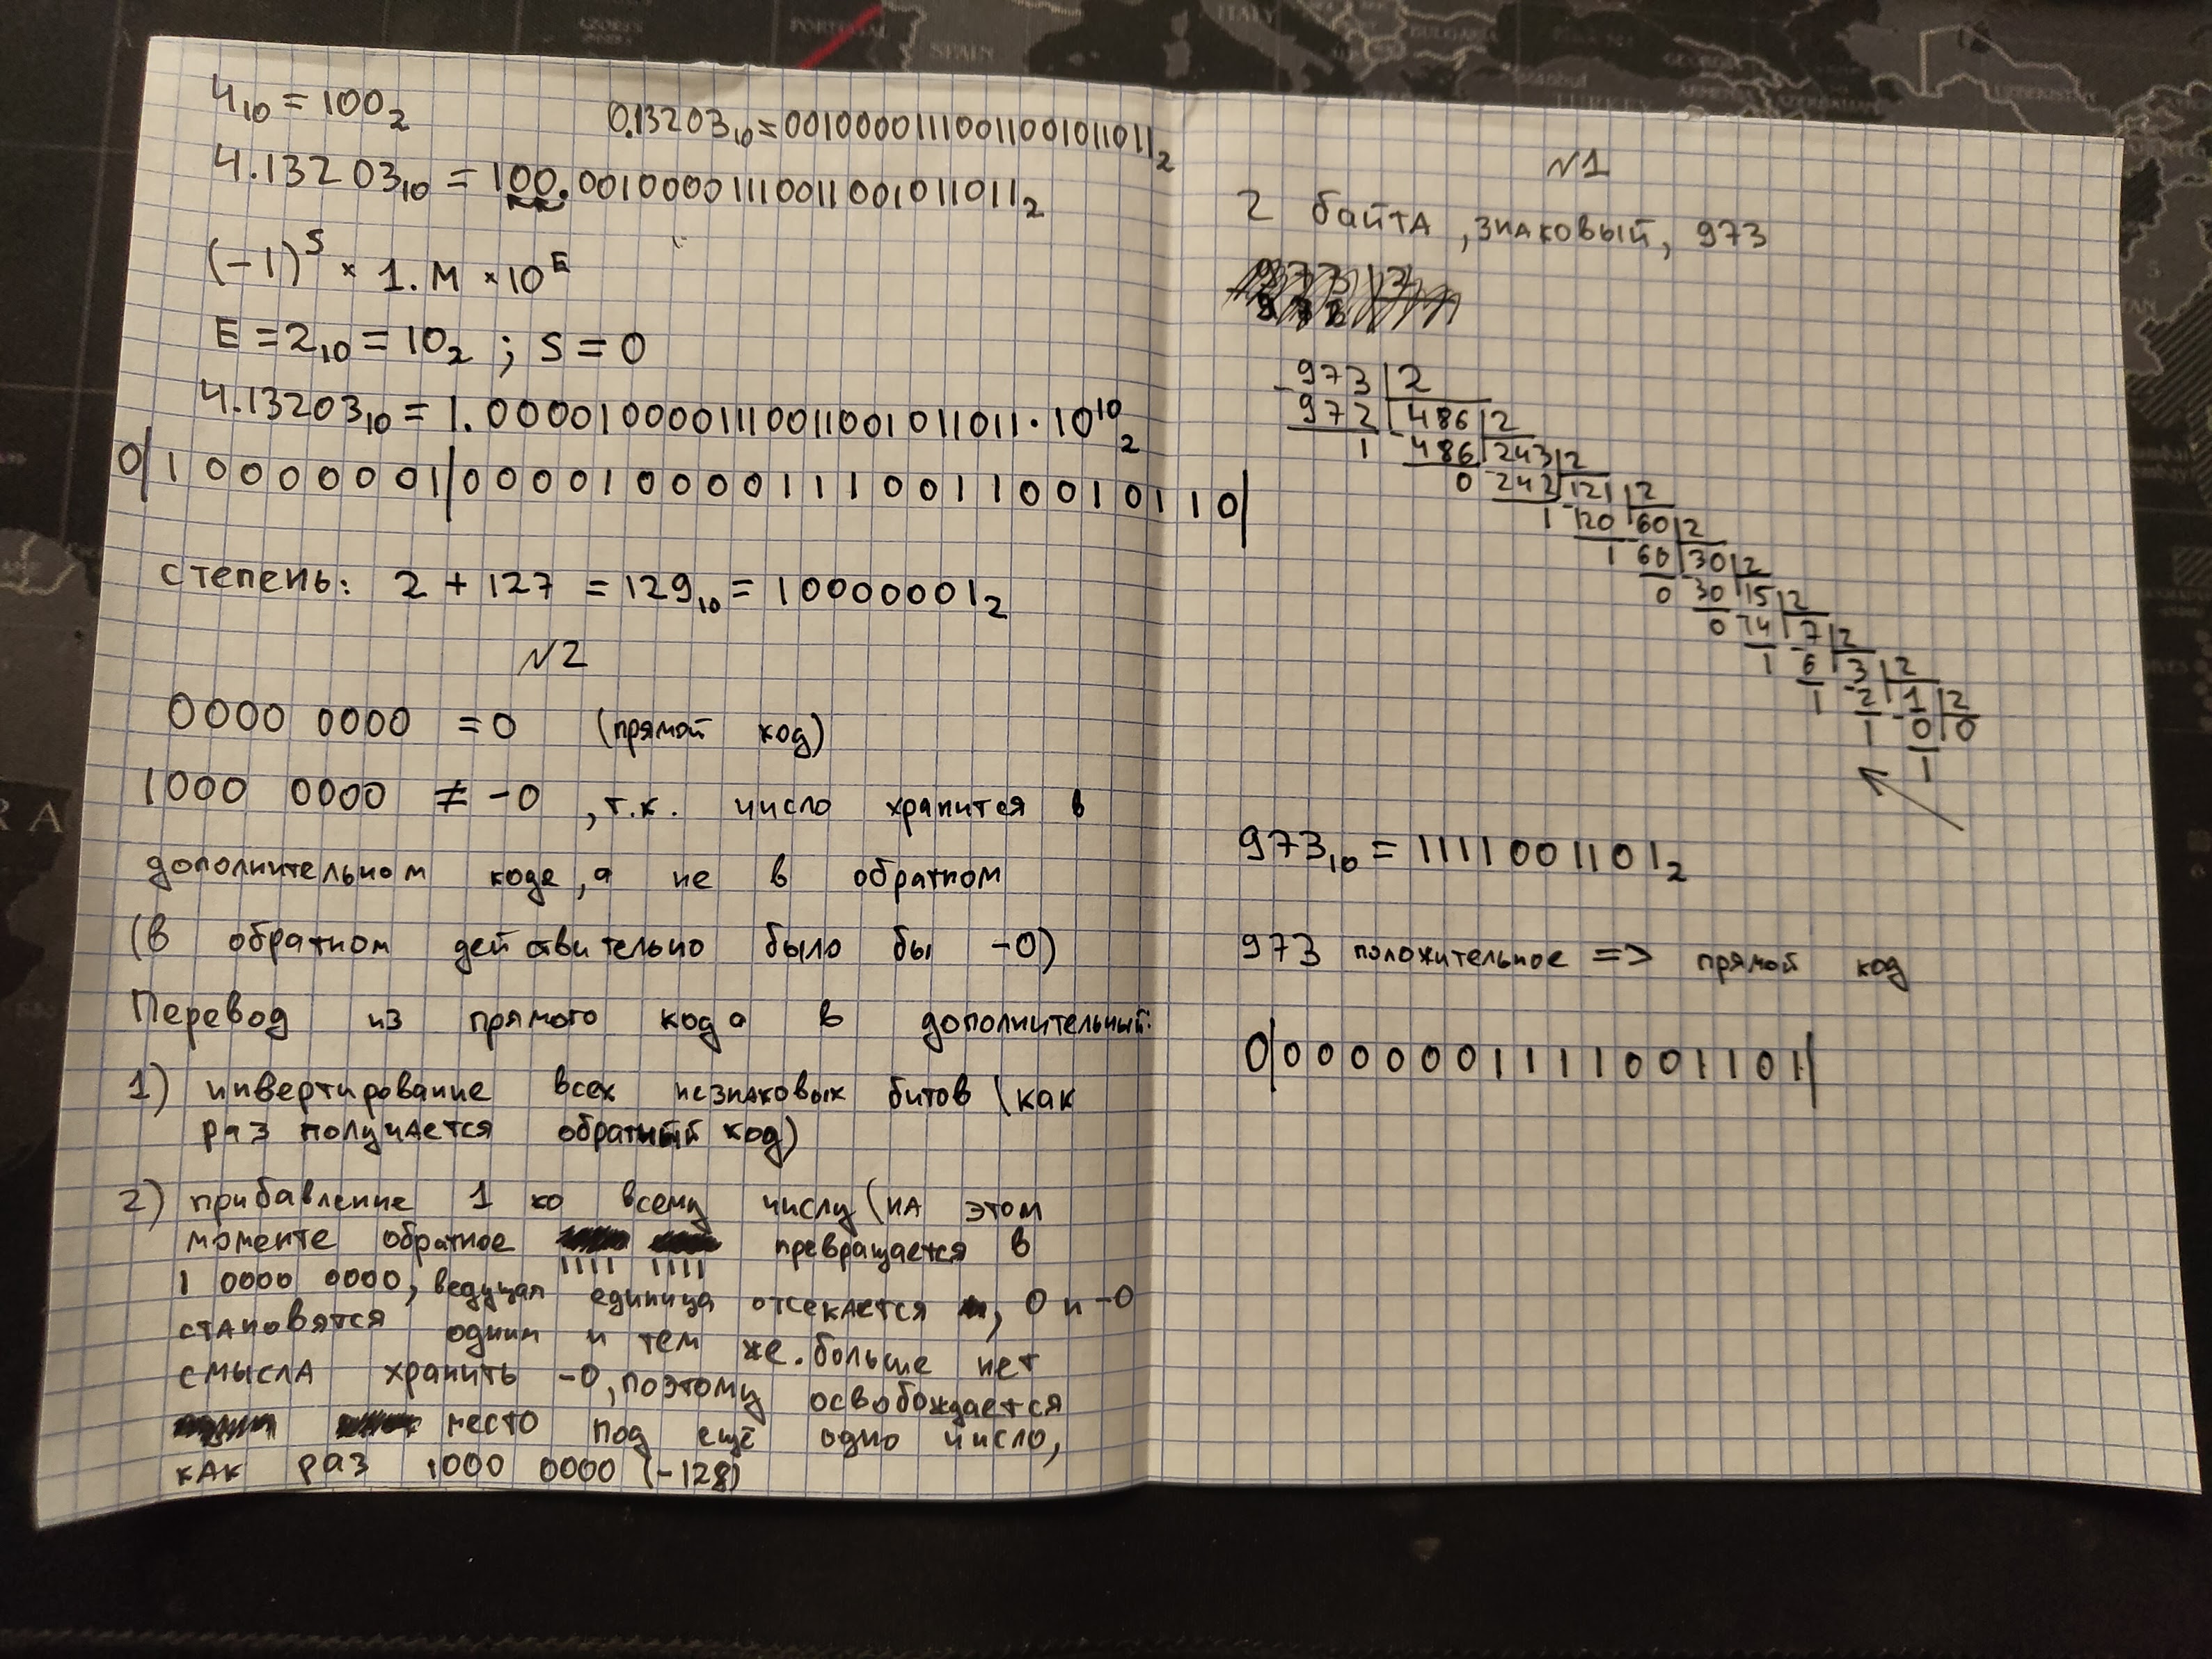 4₁₀ = 100₂
0.13203₁₀ = 001000011100110010110​11₂
4.13203₁₀ = 100.00100001110011001011011₂
(-1)^S × 1.M × 10^E
E = 2₁₀ = 10₂ ; S = 0
4.13203₁₀ = 1.0000100001110011001011011 · 10¹⁰₂
0|10000001|00001000011100110010110|
степень: 2 + 127 = 129₁₀ = 10000001₂
№2
0000 0000 = 0 (прямой код)
1000 0000 ≠ -0 , т.к. число хранится в
дополнительном коде, а не в обратном
(в обратном действительно было бы -0)
Перевод из прямого кода в дополнительный:
1) инвертирование всех незнаковых битов (как
раз получается обратный код)
2) прибавление 1 ко всему числу (на этом
моменте обратное 1111 1111 превращается в
1 0000 0000, ведущая единица отсекается, 0 и -0
становятся одним и тем же. больше нет
смысла хранить -0, поэтому освобождается
место под ещё одно число,
как раз 1000 0000 (-128)
№1
2 байта, знаковый, 973
-973|2
972|486|2
1 -486|243|2
0 -242|121|2
1 -120|60|2
1 60|30|2
0 -30|15|2
0 14|7|2
1 -6|3|2
1 -2|1|2
1 -0|0
1
973₁₀ = 1111001101₂
973 положительное => прямой код
0|000001111001101|